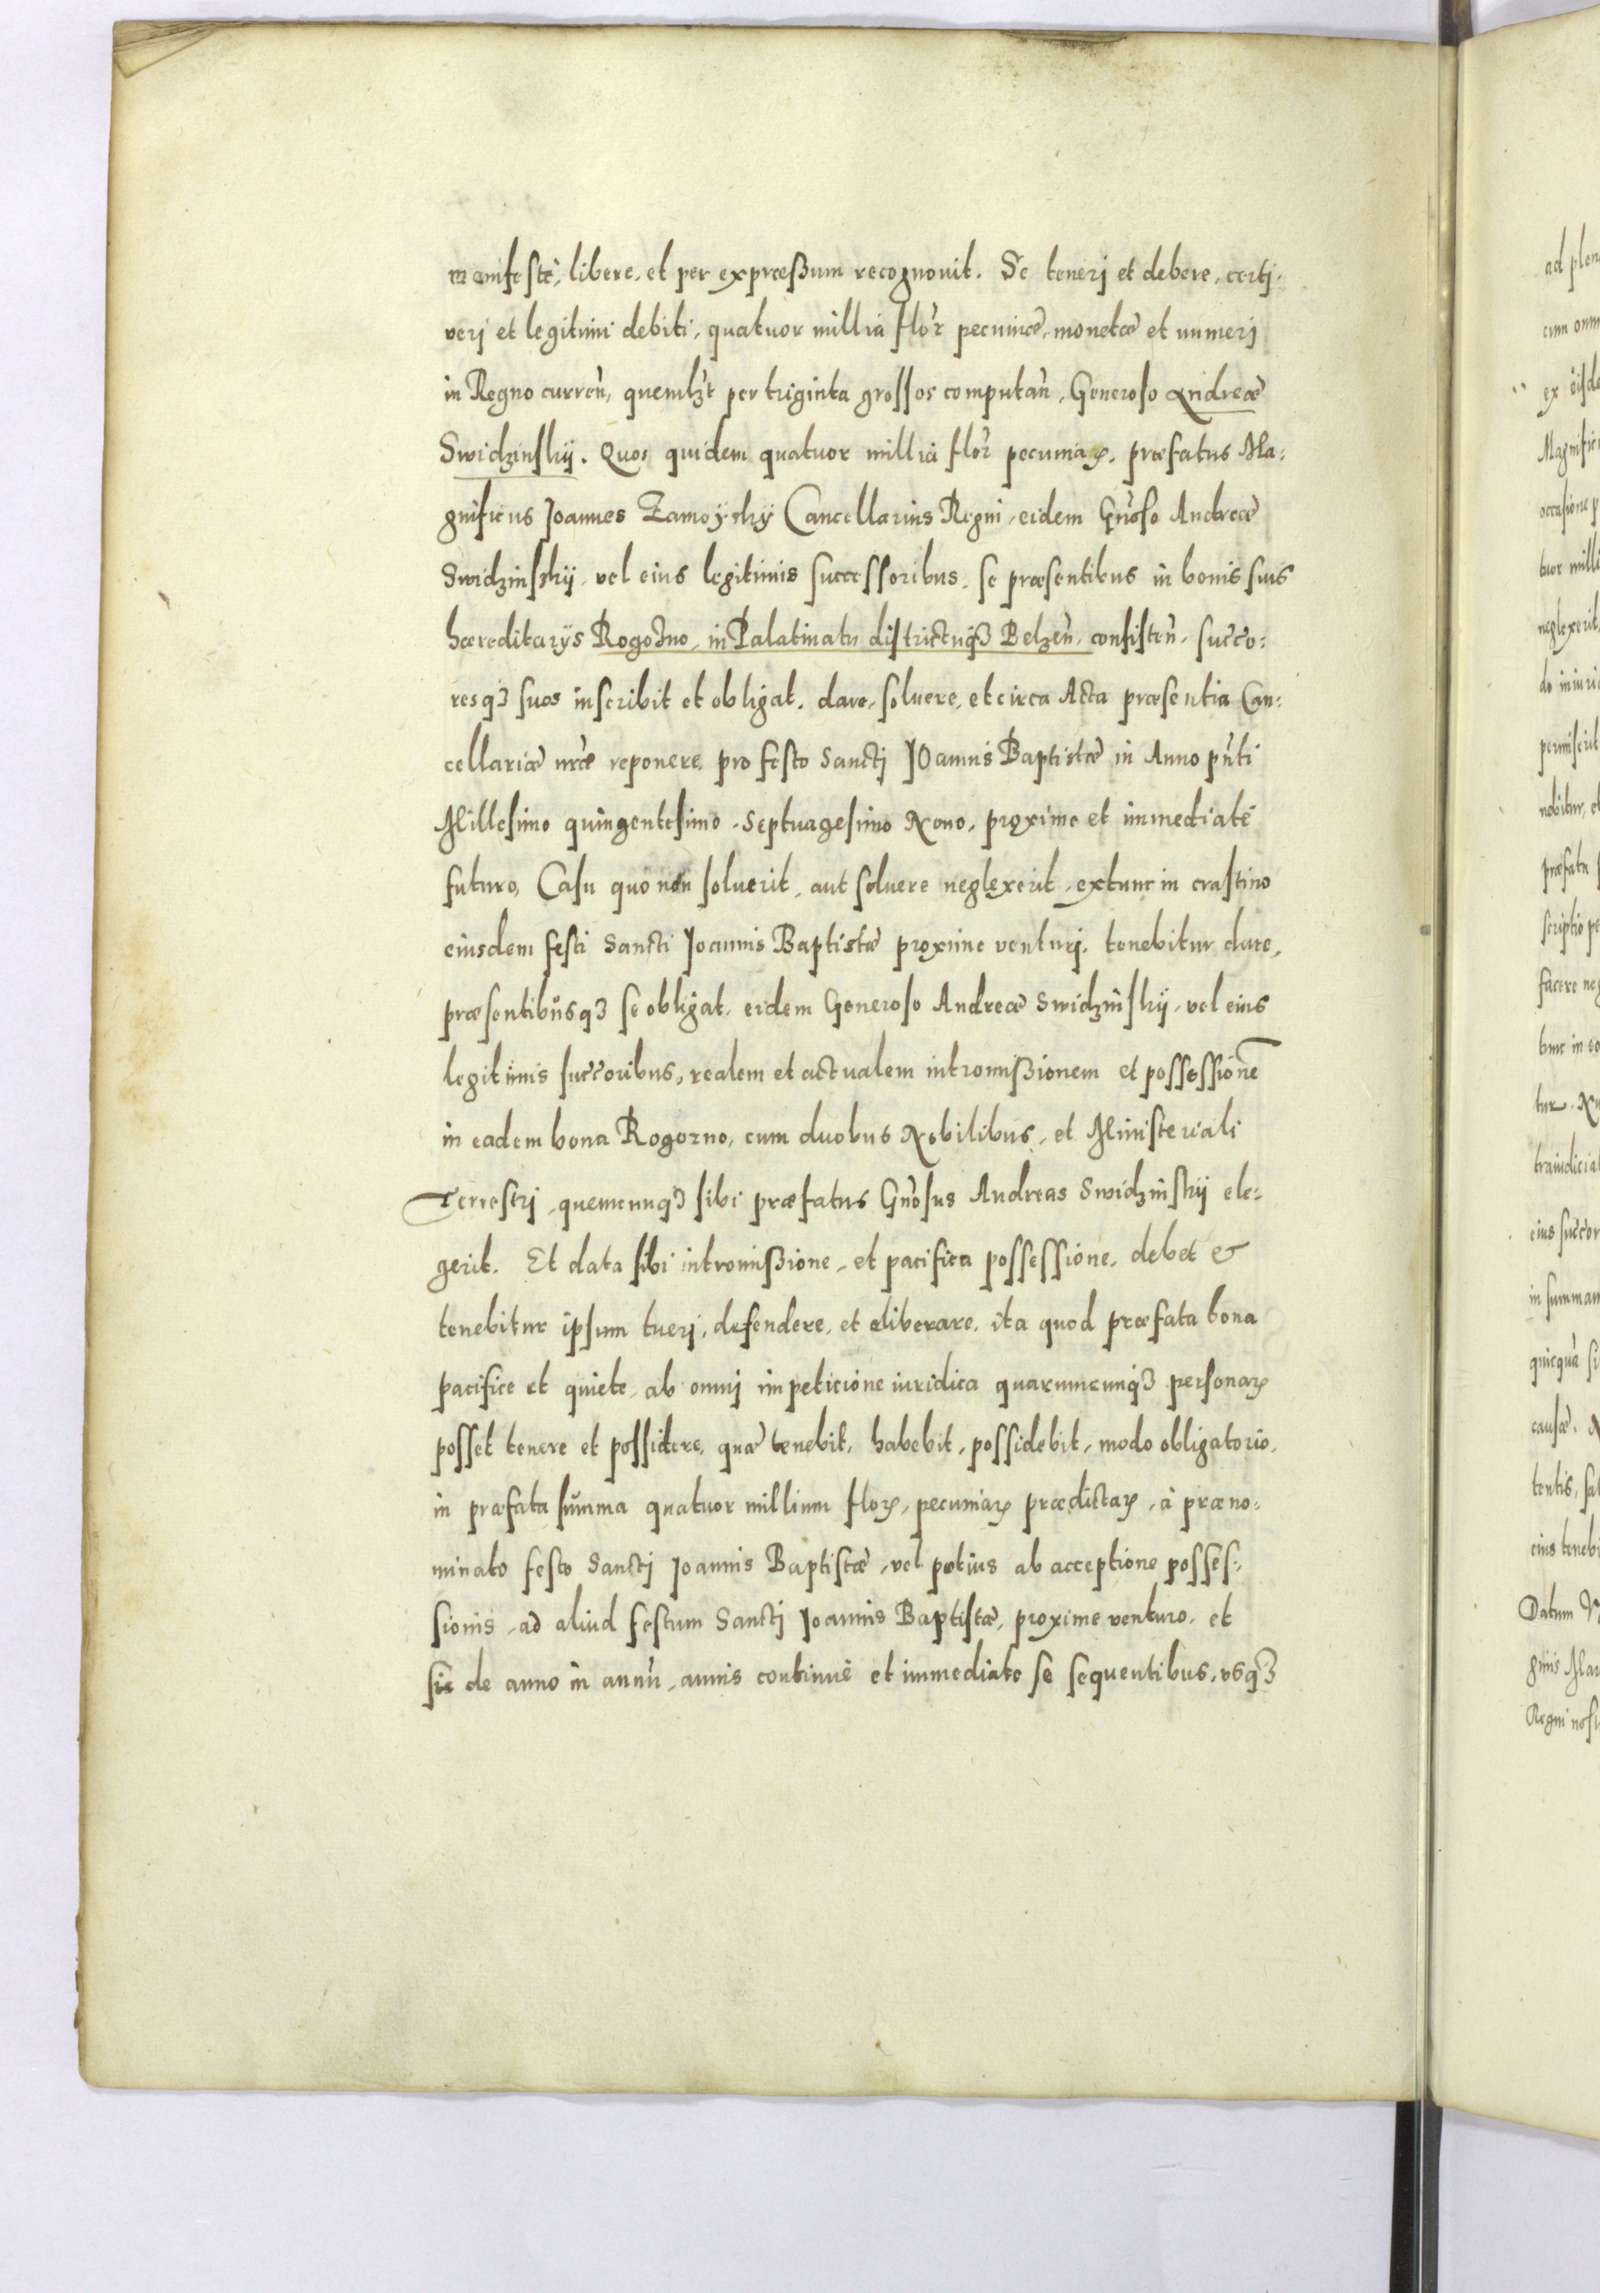 manifestè, libere, et per expræßum recognouit. Se tenerj et debere, certj,
verj et legitimi debiti, quatuor millia flor̃ pecuniæ, monetæ et numerj
in Regno curreñ, quemlzt per triginta grossos computañ, Generoso Andreæ
Swidzinskÿ. Quos quidem quatuor millia flor̃ pecuniaꝝ, præfatus Ma:
gnificus Joannes Zamoyskÿ Cancellarius Regni, eidem Gñoso Andreæ
Swidzinskÿ, vel eius legitimis successoribus, se præsentibus in bonis suis
hæreditarÿs Rogozno, in Palatinatu districtuqȝ Belzeñ, consisteñ, succ̃o:
resqȝ suos inscribit et obligat, dare, soluere, et circa Acta præsentia Can:
cellariæ nr̃æ reponere, pro festo Sanctj JOannis Baptistæ in Anno pñti
Millesimo quingentesimo, Septuagesimo Nono, proxime et immediatè
futuro, Casu quo non soluerit, aut soluere neglexerit, extunc in crastino
eiusdem festi Sancti Joannis Baptistæ proxime venturj, tenebitur dare,
præsentibusqȝ se obligat, eidem Generoso Andreæ Swidzinskÿ, vel eius
legitimis succ̃oribus, realem et actualem intromißionem et possessionẽ
in eadem bona Rogozno, cum duobus Nobilibus, et Ministeriali
Terrestrj, quemcunqȝ sibi præfatus Gñosus Andreas Swidzinskÿ ele:
gerit. Et data sibi intromißione, et pacifica possessione, debet &
tenebitur ipsum tuerj, defendere, et eliberare, ita quod præfata bona
pacifice et quiete, ab omnj impeticione iuridica quarumcunqȝ personaꝝ
posset tenere et possidere, quæ tenebit, habebit, possidebit, modo obligatorio,
in præfata summa quatuor millium floꝝ, pecuniaꝝ prædictaꝝ, à præno:
minato festo Sanctj Joannis Baptistæ, vel potius ab acceptione posses:
sionis, ad aliud festum Sanctj Joannis Baptistæ, proxime venturo, et
sic de anno in annũ, annis continuè et immediate se sequentibus, vsqȝ